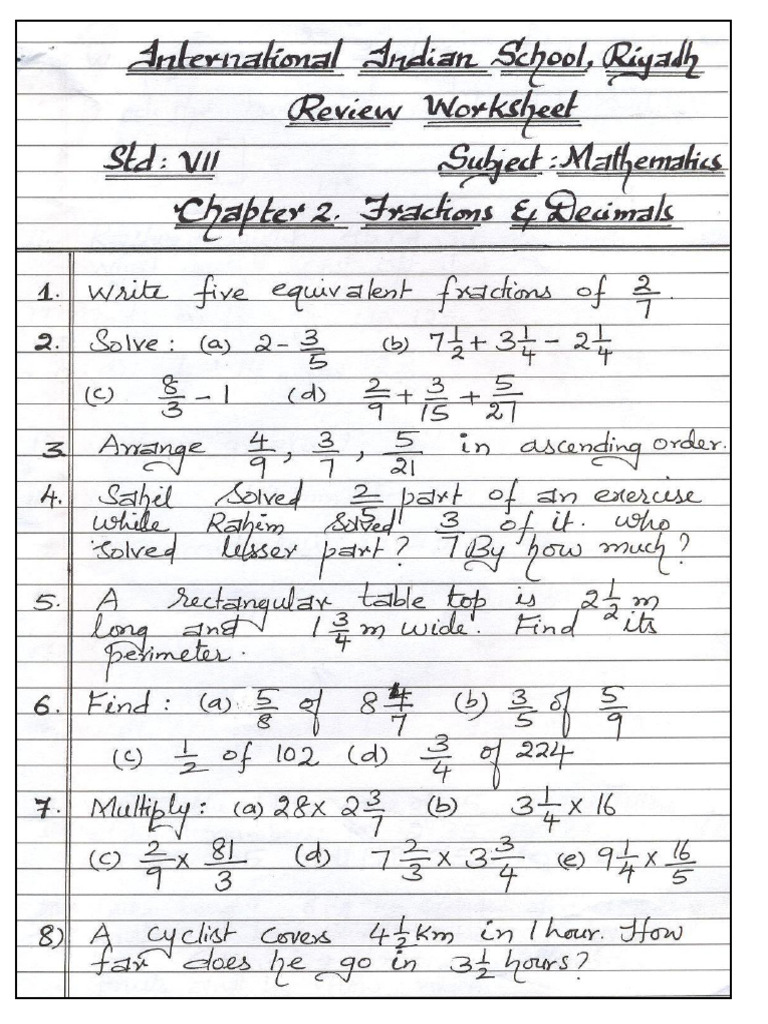 International Indian School, Riyadh
Review Worksheet
Std: VII Subject: Mathematics
Chapter 2. Fractions & Decimals
1. Write five equivalent fractions of 2/7.
2. Solve: (a) 2 - 3/5 (b) 7 1/2 + 3 1/4 - 2 1/4
(c) 8/3 - 1 (d) 2/9 + 3/15 + 5/27
3. Arrange 4/9, 3/7, 5/21 in ascending order.
4. Sahil Solved 2/5 part of an exercise
while Rahim solved 3/7 of it. who
solved lesser part? By how much?
5. A rectangular table top is 2 1/2 m
long and 1 3/4 m wide. Find its
perimeter.
6. Find: (a) 5/8 of 8 4/7 (b) 3/5 of 5/9
(c) 1/2 of 102 (d) 3/4 of 224
7. Multiply: (a) 28 x 2 3/7 (b) 3 1/4 x 16
(c) 2/9 x 81/3 (d) 7 2/3 x 3 3/4 (e) 9 1/4 x 16/5
8) A cyclist covers 4 1/2 Km in 1 hour. How
far does he go in 3 1/2 hours?